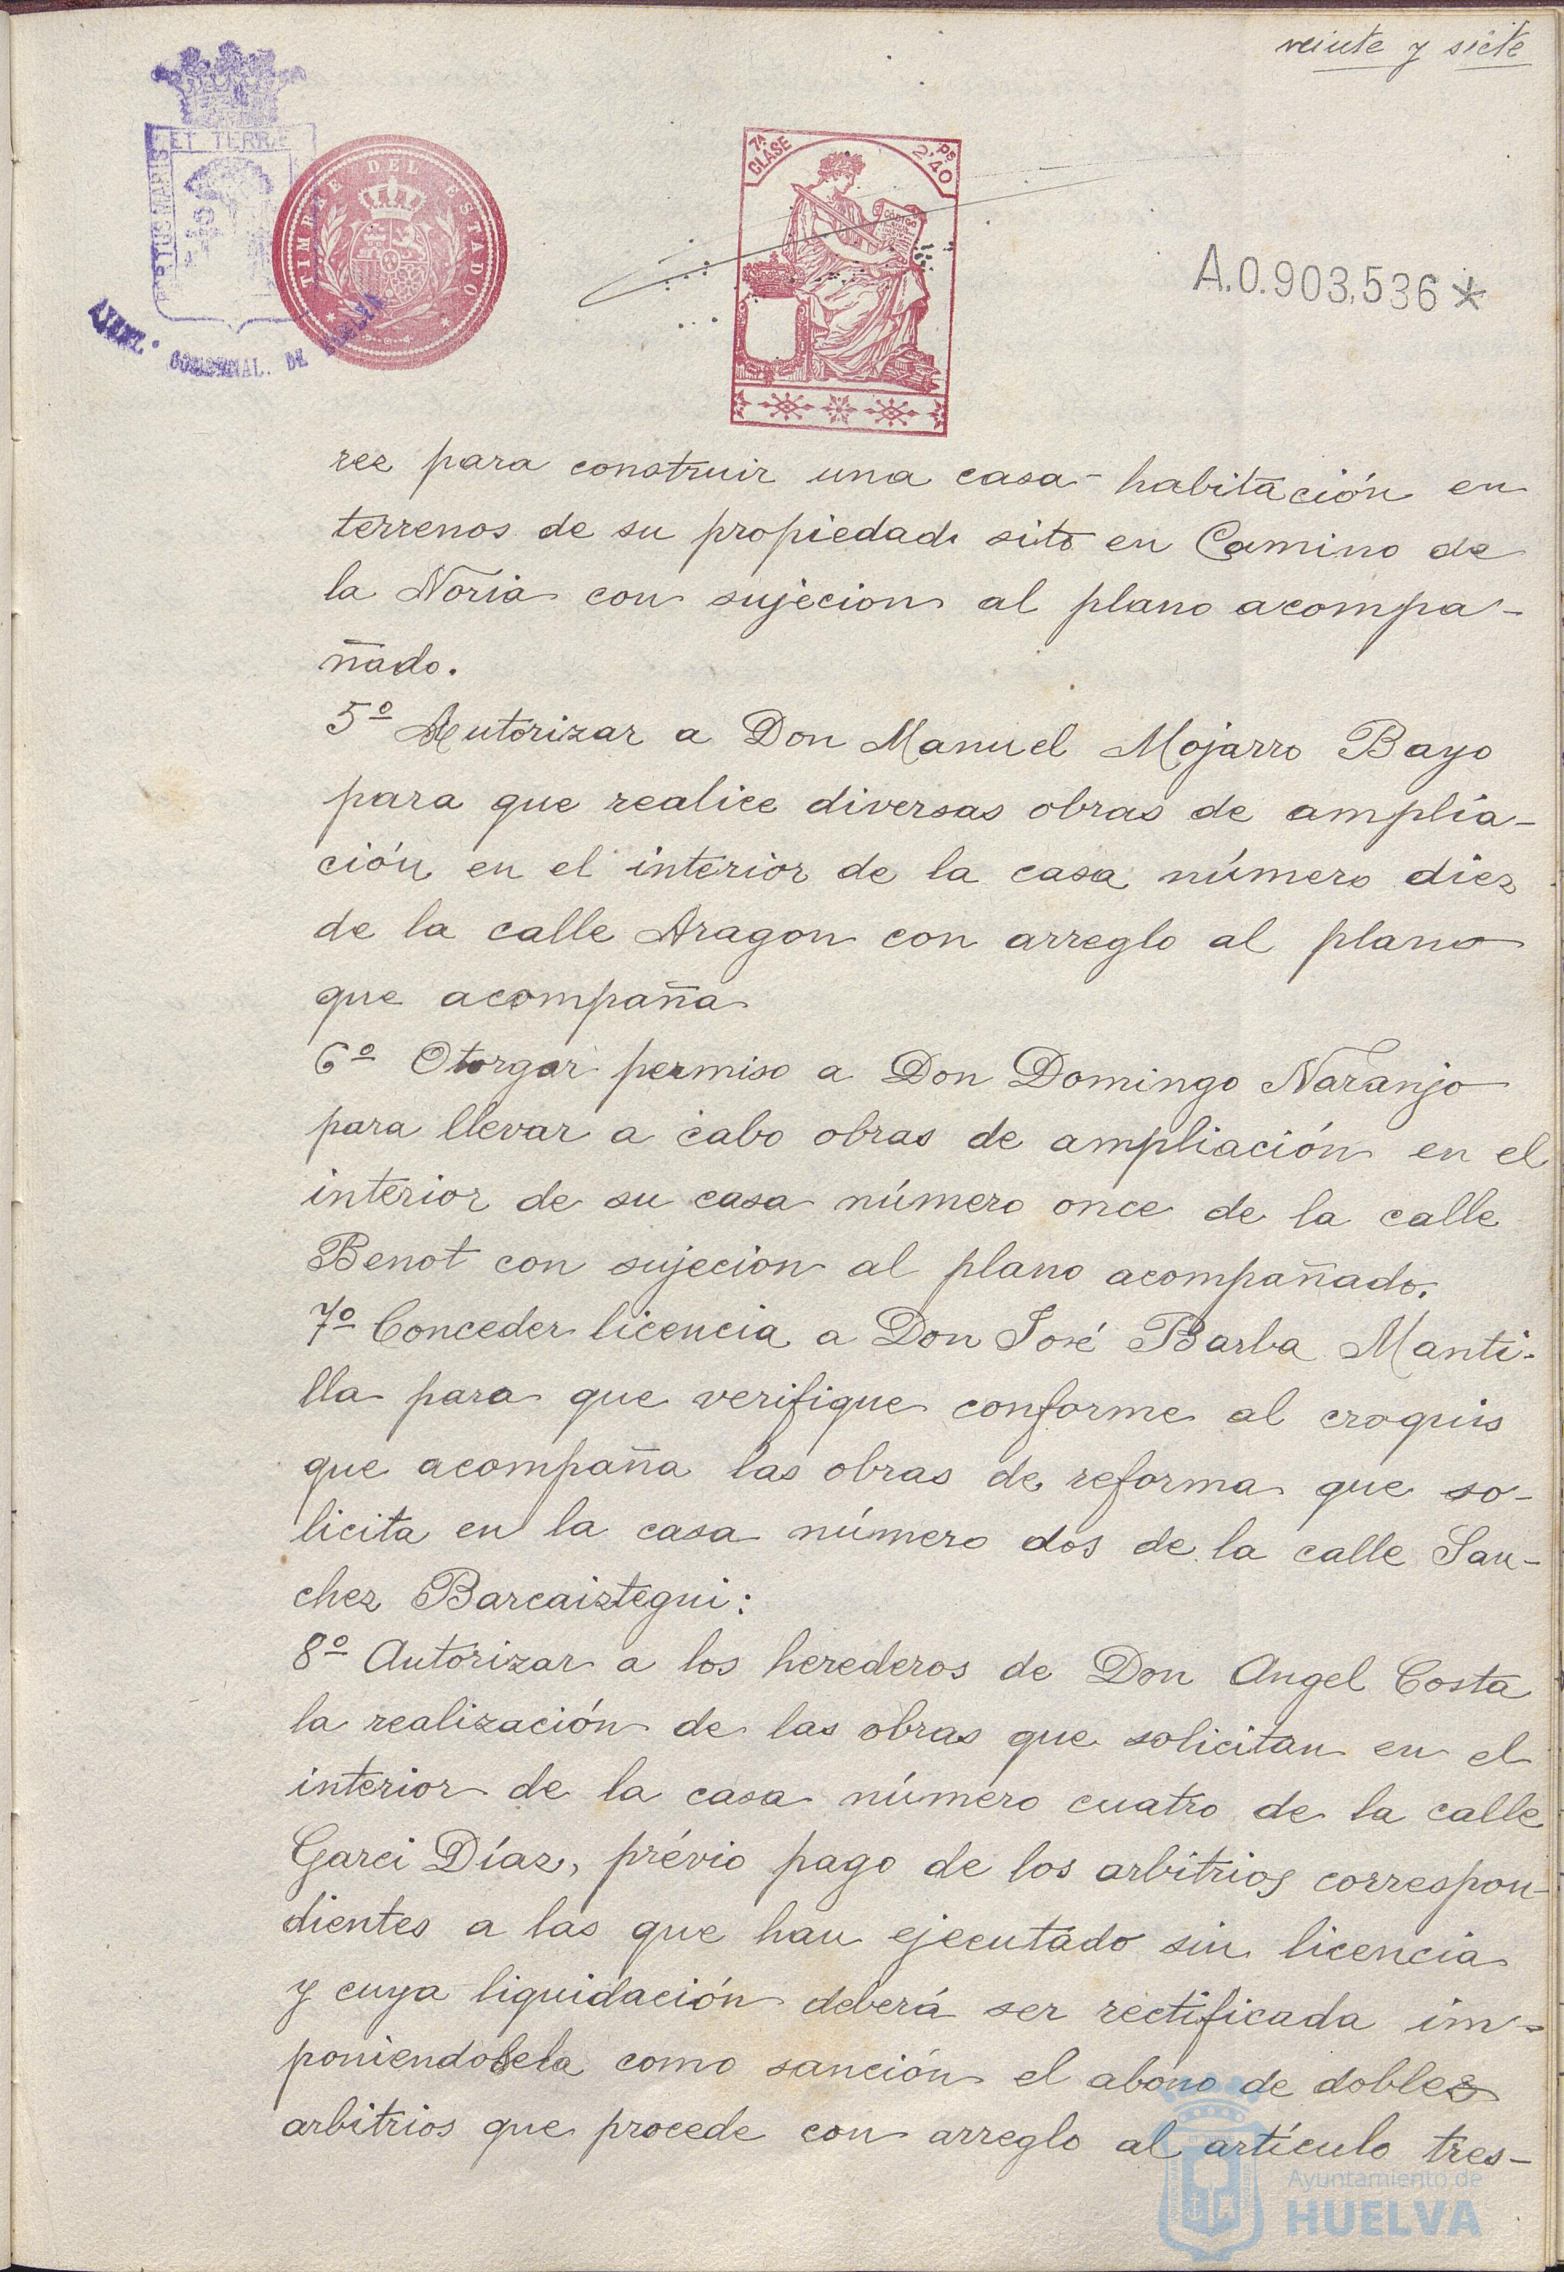 veinte y siete
ET TERRE
TIMBRE DEL ESTADO
7ª CLASE
2'40 Ps
CODIGO
A.0.903,536*
COMISIONAL. DE
rez para construir una casa-habitación en
terrenos de su propiedad sito en Camino de
la Noria con sujecion al plano acompa-
ñado.
5º Autorizar a Don Manuel Mojarro Bayo
para que realice diversas obras de amplia-
ción en el interior de la casa número diez
de la calle Aragon con arreglo al plano
que acompaña
6º Otorgar permiso a Don Domingo Naranjo
para llevar a cabo obras de ampliación en el
interior de su casa número once de la calle
Benot con sujecion al plano acompañado.
7º Conceder licencia a Don José Barba Manti-
lla para que verifique conforme al croquis
que acompaña las obras de reforma que so-
licita en la casa número dos de la calle San-
chez Barcaiztegui:
8º Autorizar a los herederos de Don Angel Costa
la realización de las obras que solicitan en el
interior de la casa número cuatro de la calle
Garci Díaz, prévio pago de los arbitrios correspon-
dientes a las que han ejecutado sin licencia
y cuya liquidación deberá ser rectificada im-
poniendosela como sanción el abono de dobles
arbitrios que procede con arreglo al artículo tres-
Ayuntamiento de
HUELVA